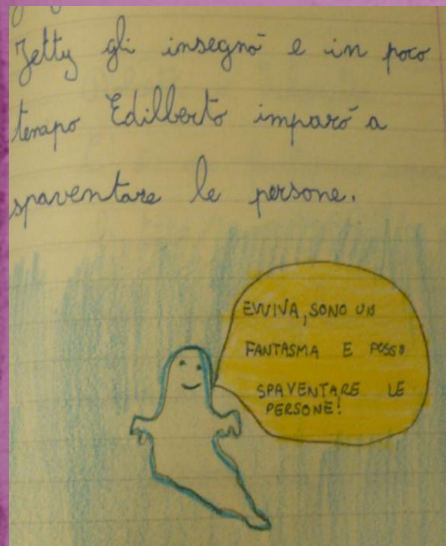 Jetty gli insegnò e in poco
tempo Edilberto imparò a
spaventare le persone.
EVVIVA, SONO UN
FANTASMA E POSSO
SPAVENTARE LE
PERSONE!